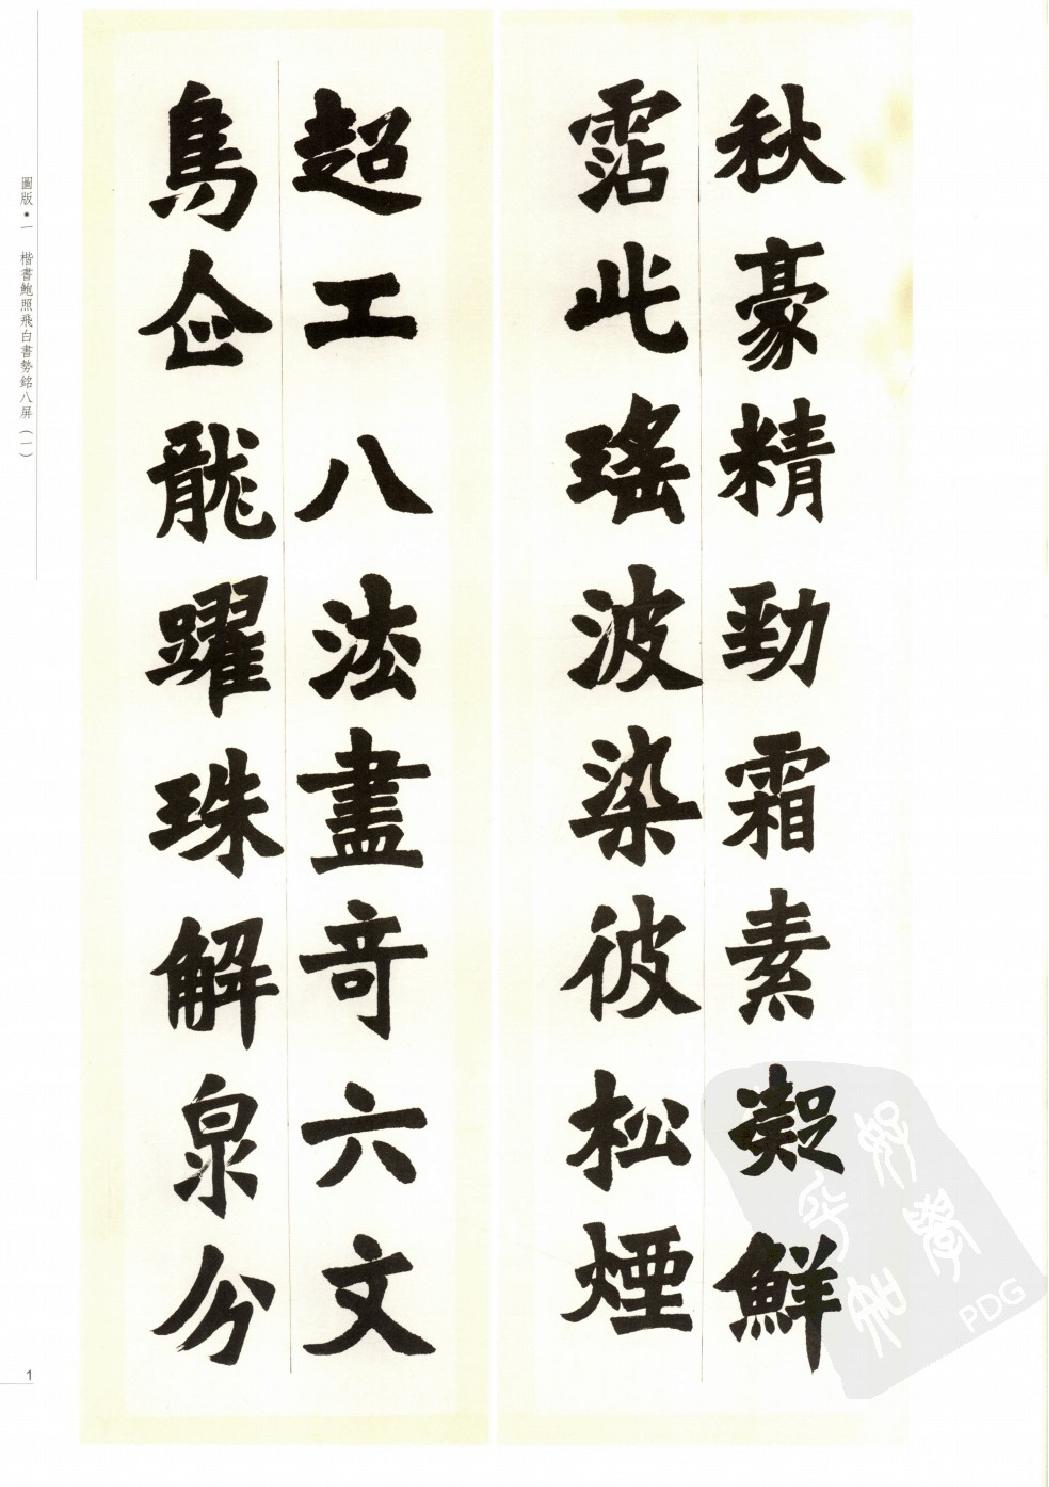 秋豪精勁霜素凝鮮
霑此瑤波染彼松煙
超工八法盡奇六文
鳥企龍躍珠解泉分
圖版·一 楷書鮑照飛白書勢銘八屏（一）
1
PDG